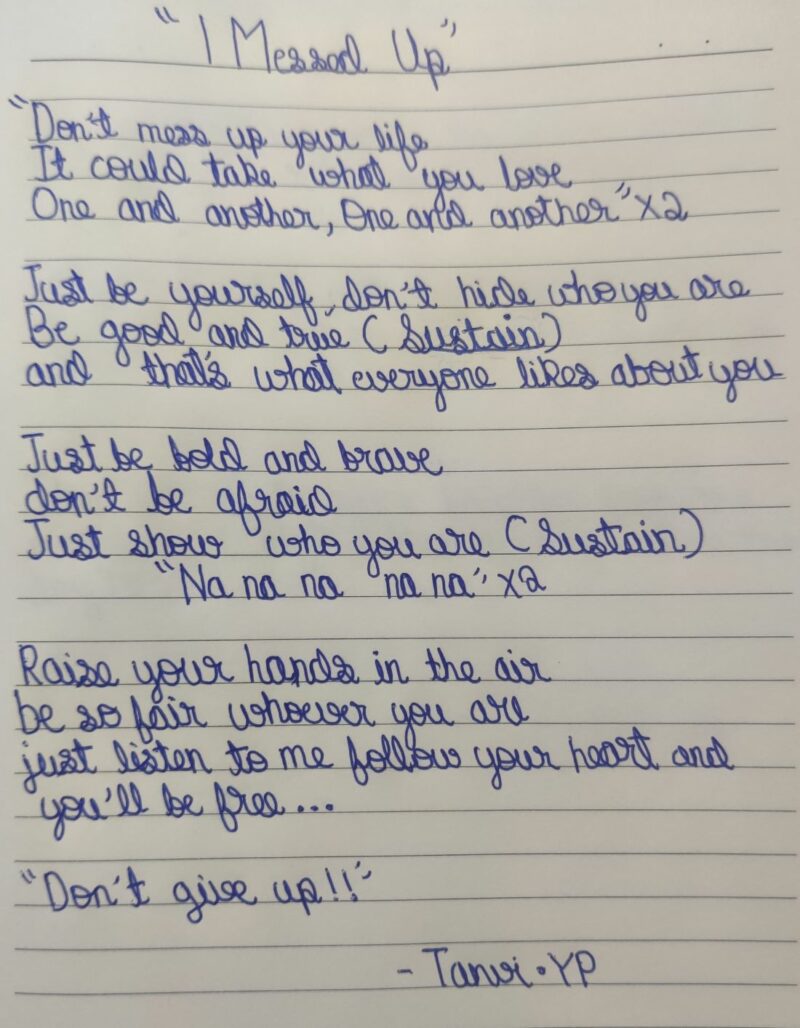 "I Messed Up"
"Don't mess up your life
It could take what you love
One and another, One and another" x2
Just be yourself, don't hide who you are
Be good and true (Sustain)
and that's what everyone likes about you
Just be bold and brave
don't be afraid
Just show who you are (Sustain)
"Na na na na na" x2
Raise your hands in the air
be so fair whoever you are
just listen to me follow your heart and
you'll be free...
"Don't give up!!"
- Tanvi • YP